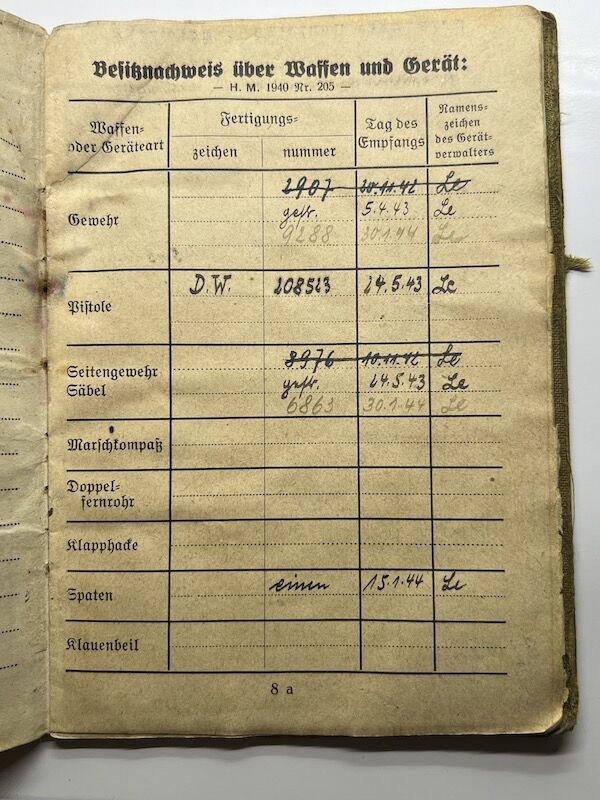 Besitznachweis über Waffen und Gerät:
— H. M. 1940 Nr. 205 —
Waffen- oder Geräteart
Fertigungs-
zeichen nummer
Tag des Empfangs
Namens- zeichen des Gerät- verwalters
Gewehr
2907 20.11.42 Le
gestr. 5.4.43 Le
9288 30.1.44 Le
Pistole
D.W. 208523 24.5.43 Le
Seitengewehr Säbel
8976 10.11.42 Le
gestr. 24.5.43 Le
6863 30.1.44 Le
Marschkompaß
Doppel- fernrohr
Klapphacke
Spaten einen 15.1.44 Le
Klauenbeil
8 a